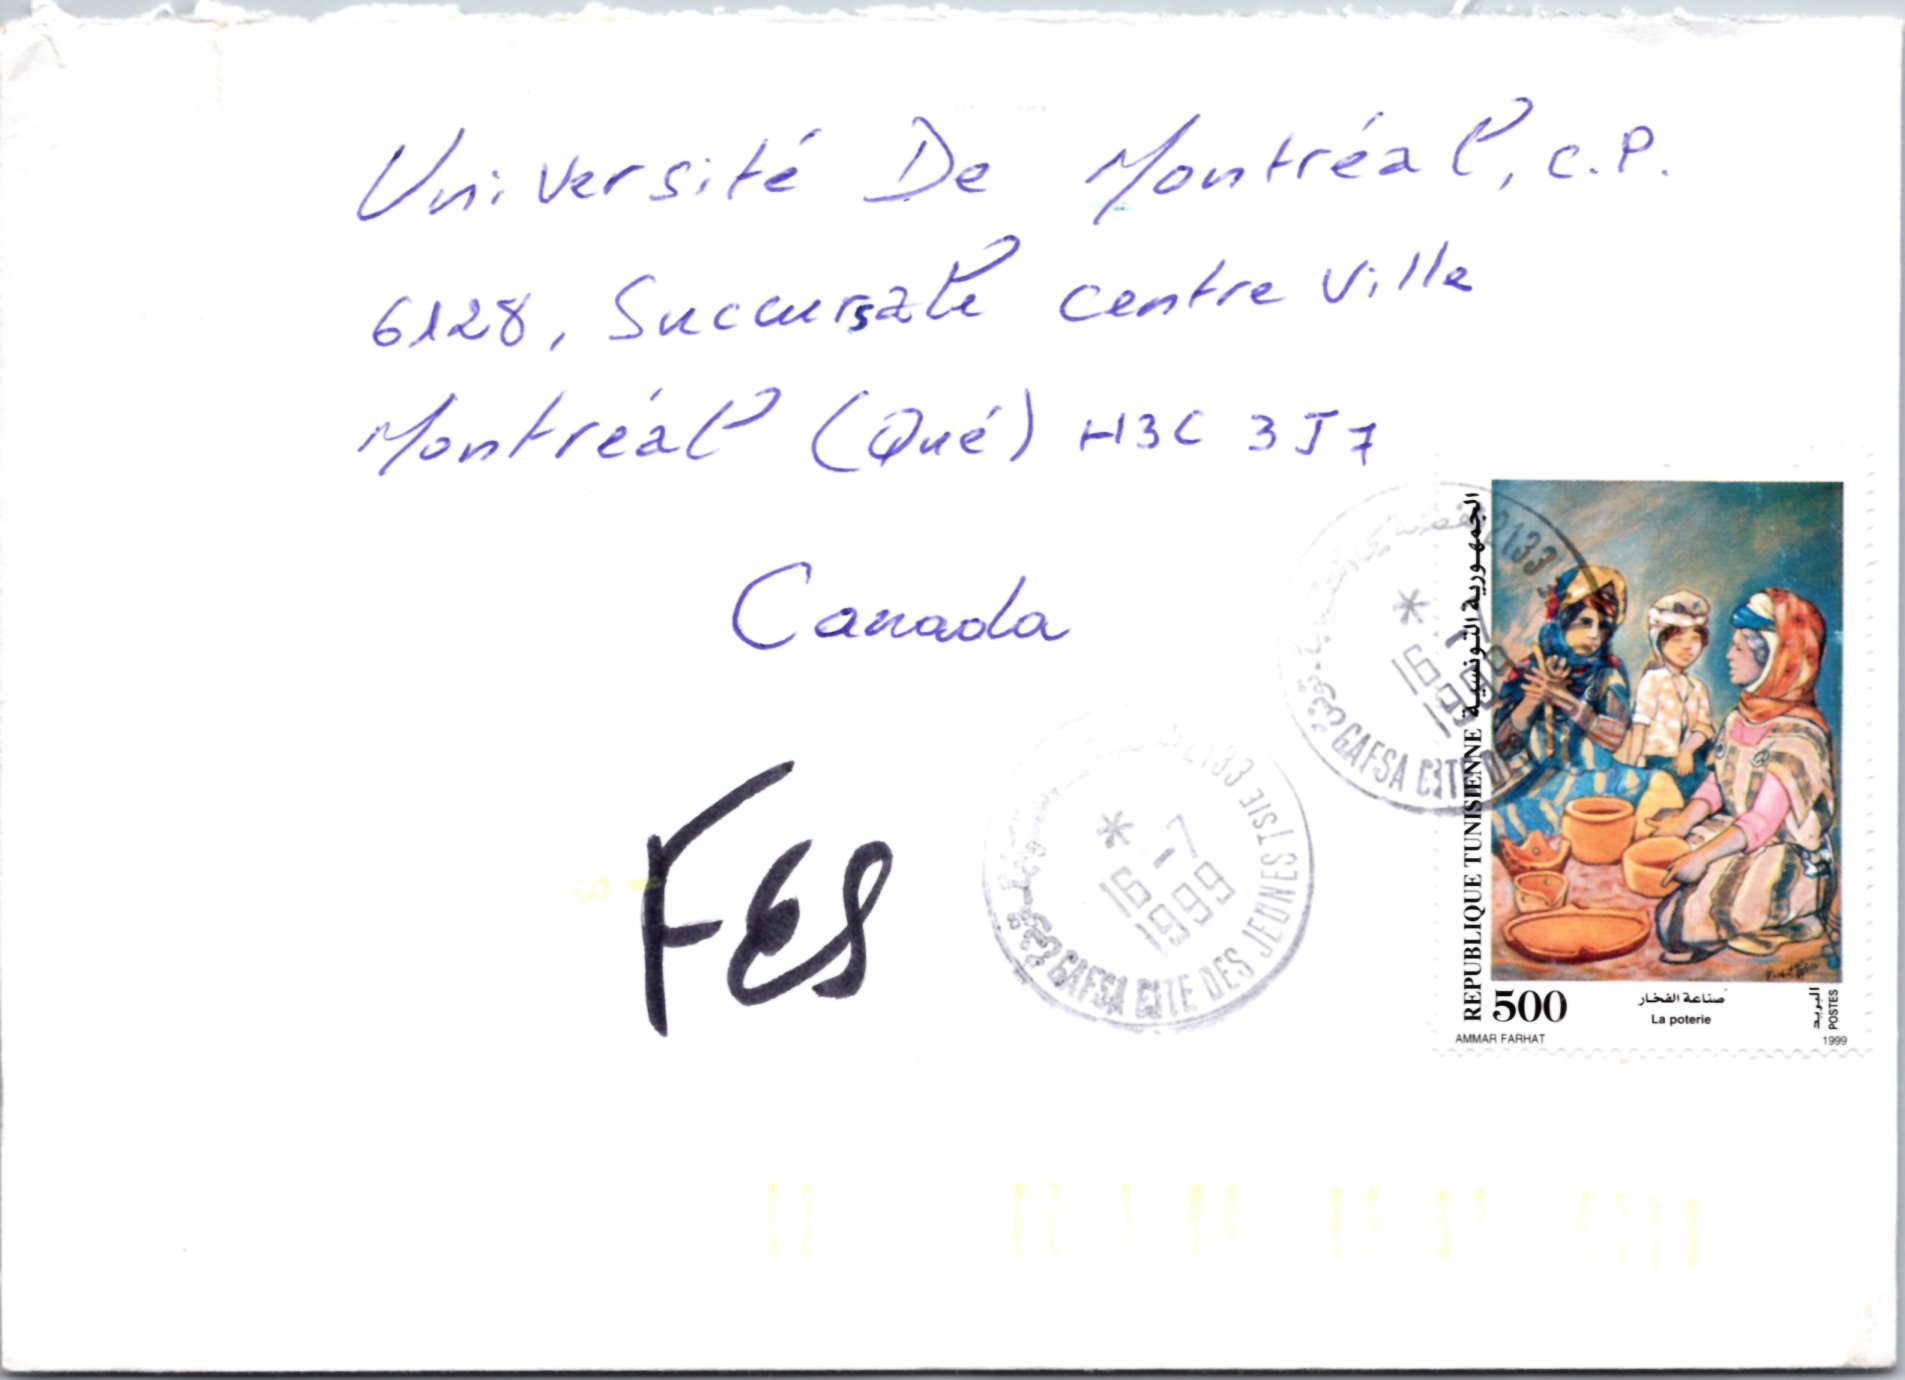 Université De Montréal, C.P.
6128, Succursale centre Ville
Montréal (Qué) H3C 3J7
Canada
FES
2133
GAFSA CITE DES
* -7
16
1999
2133
GAFSA CITE DES JEUNES TSIE
* -7
16
1999
REPUBLIQUE TUNISIENNE الجمهورية التونسية
500
صناعة الفخار
La poterie
البريد
POSTES
AMMAR FARHAT
1999